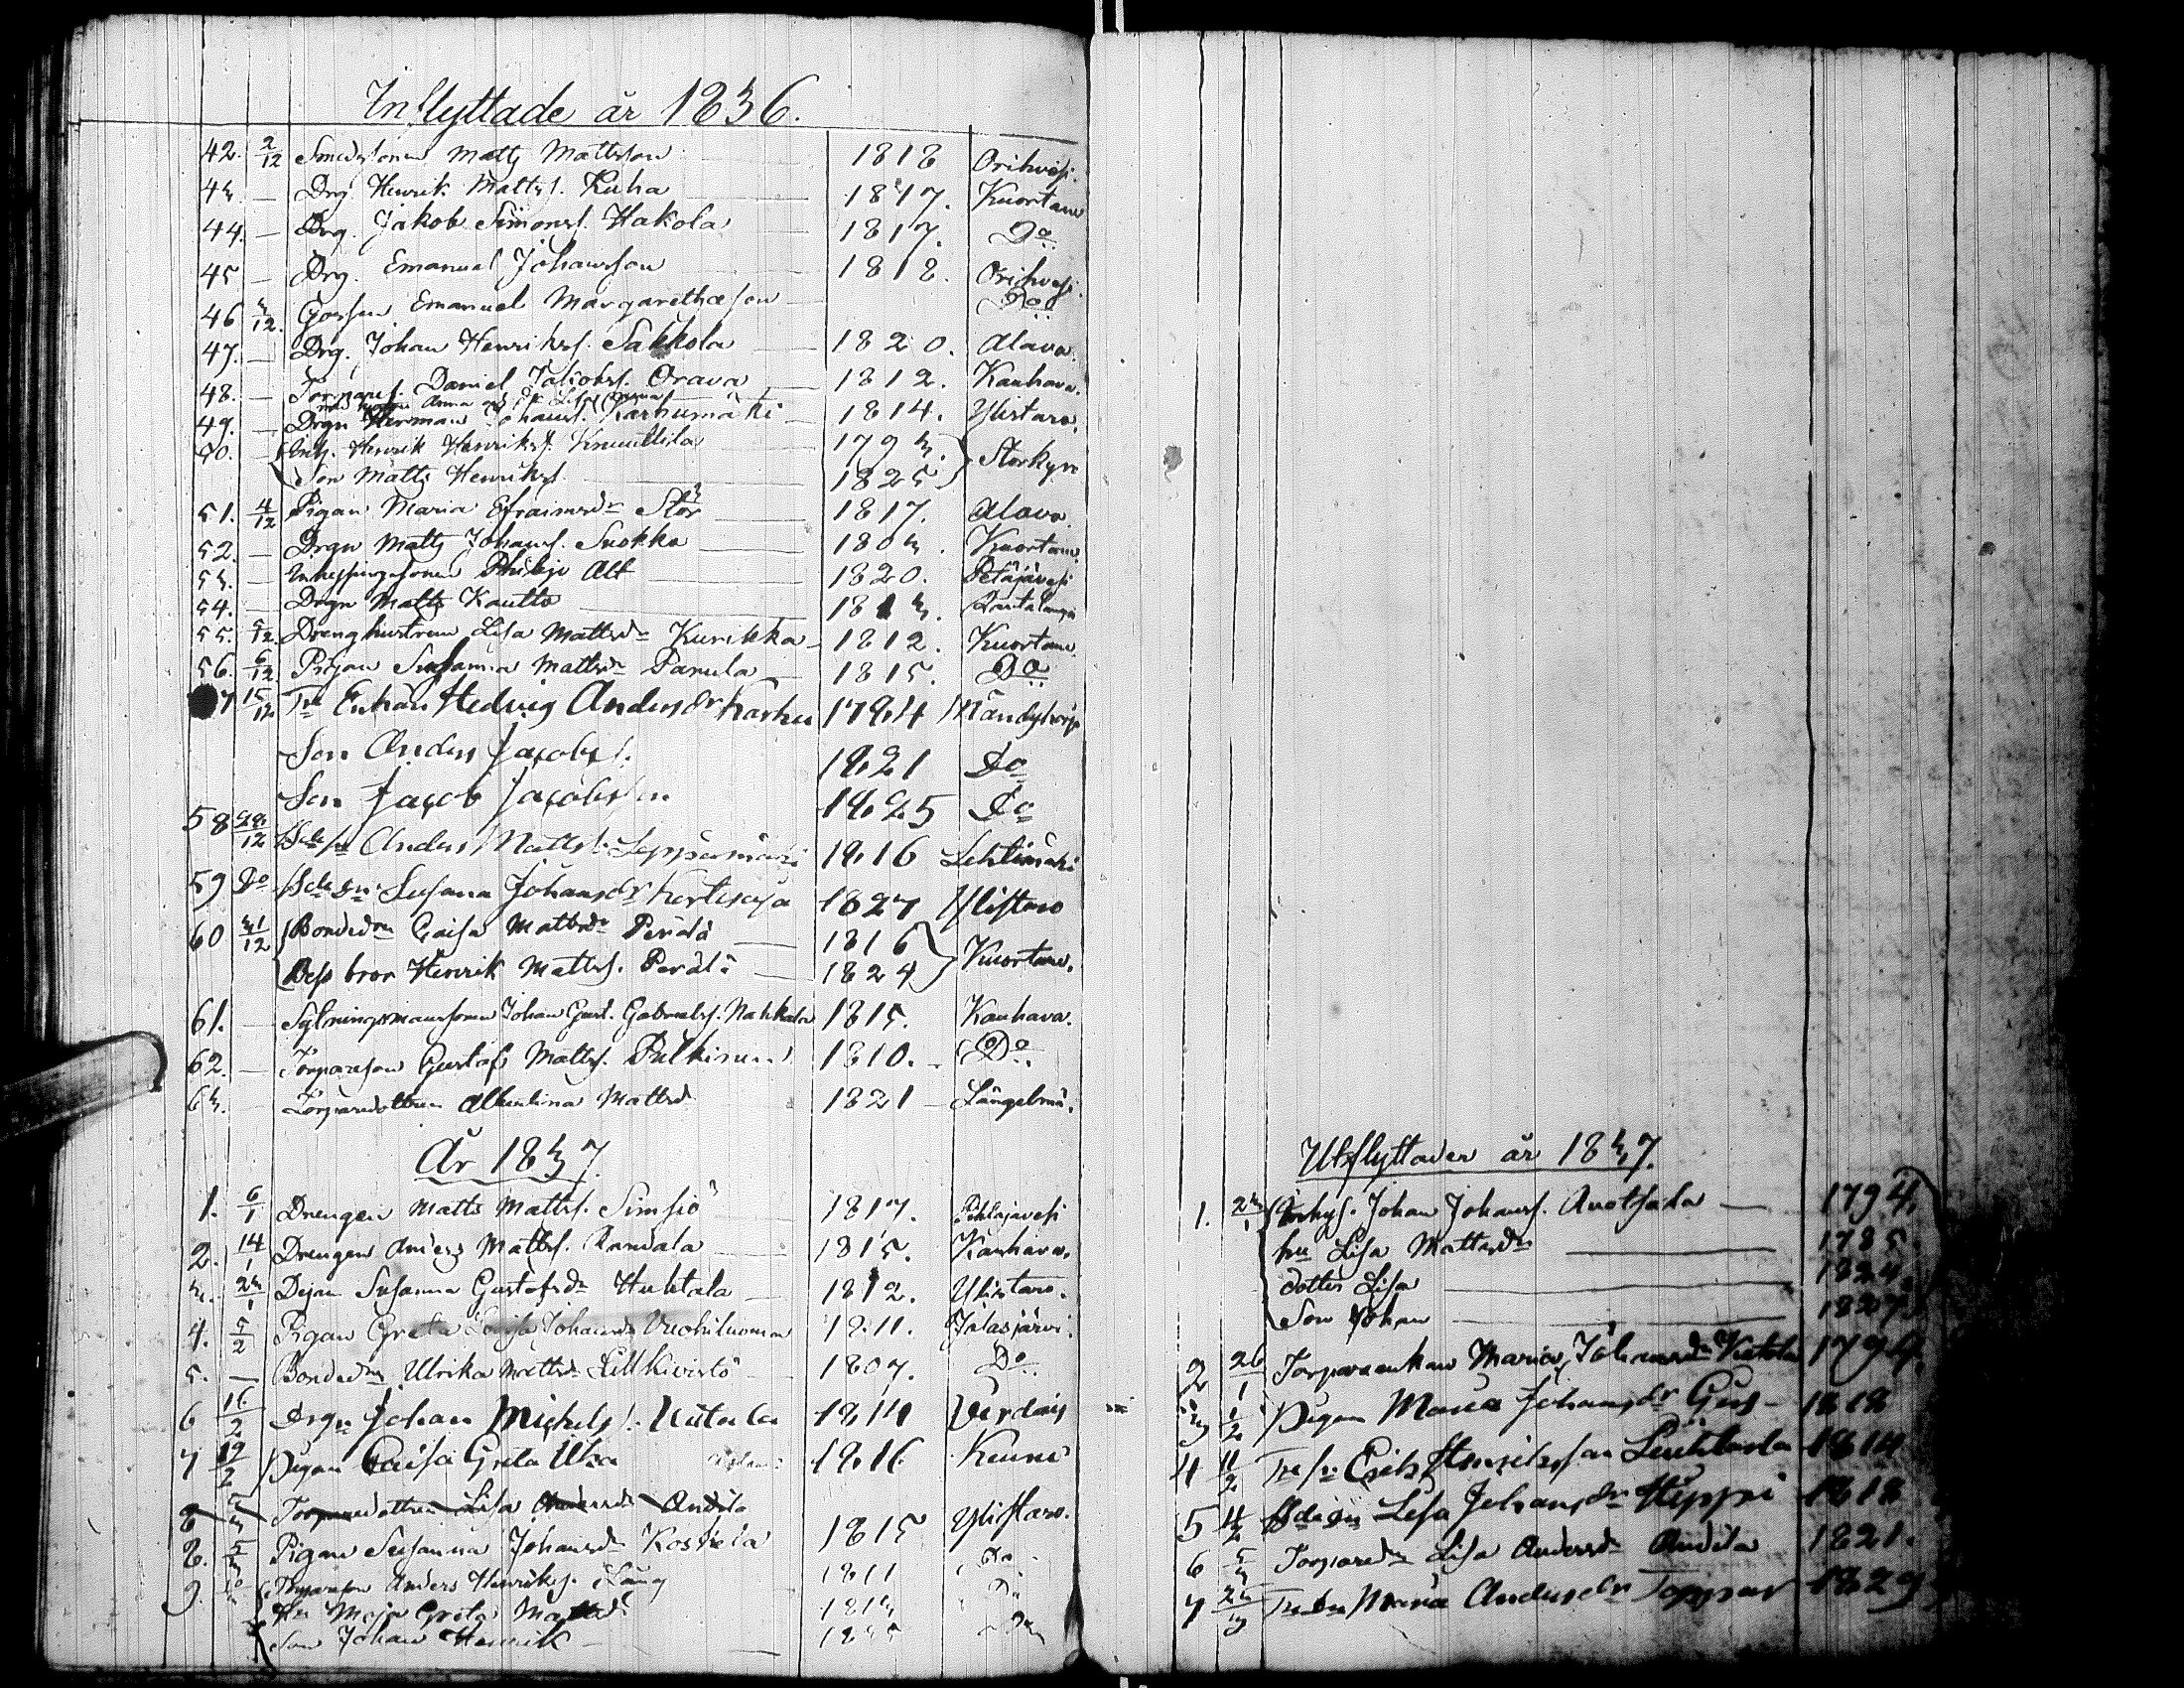 Inflyttade år 1836.
42. 2/12 Smedssonen Matts Mattsson 1818 Orihvesi.
43. — Drg. Henrik Mattss. Kuha 1817. Kuortane
44. — Drg. Jakob Simonss. Hakola 1817. Do
45 — Drg. Emanuel Johansson 1818. Orihvesi.
46 3/12. Gossen Emanuel Margarethæson Do
47. — Drg. Johan Henrikss. Sakkola 1820. Alavo.
48. — Torpares. Daniel Jakobss. Orava 1812. Kauhava.
49. — Drgn Herman Johanss. Karhumäki 1814. Ylistaro.
50. — Henrik Henrikss. Knuuttila 1793. Storkyro
Son Matts Henrikss. 1825
51. 4/12 Pigan Maria Efraimsdr Stör 1817. Alavo.
52. — Drgn Matts Johanss. Suokko 1803. Kuortane
53. — Inhysingesonen Alt 1820. Petäjävesi
54. — Drgn Matts Kautto 1813. Rautalampi
55. 5/12. Drenghustrun Lisa Mattsdr Kurikka 1812. Kuortane
56. 6/12. Pigan Susanna Mattsdr Panula 1815. Do
7 15/12 Tre Enkan Hedvig Andersdr Karhu 1794
Son Anders Jacobss. 1821 Do
Son Jacob Jacobsson 1825 Do
58 28/12 Bdeson Anders Mattss. Leppämäki 1816 Lehtimäki
59 Do Bdedr. Susana Johansdr 1827 Ylistaro
60 31/12 Bondedr Caisa Mattsdr Perälä 1816 Kuortane.
Dess bror Henrik Mattss. Perälä 1824
61. — Johan Gust. Gabrielss. Nahkala 1815. Kauhava.
62. — Torpareson Gustaf Mattss. Pulkinen 1810. Do
63. — Torparedottren Albertina Mattsd. 1821 Längelmä.
År 1837.
1. 6/1 Drengen Matts Mattss. Simsiö 1817. Pihlajavesi
2. 14/1 Drengen Anders Mattss. Randala 1815. Kauhava.
3. 23/1 Pejan Susanna Gustafsdr Huhtala 1812. Ylistaro.
4. 5/2 Pigan Greta Lovisa Johansdr Vuohiluoma 1811. Jalasjärvi.
5. — Bondedr Ulrika Mattsdr Lill Kivistö 1807. Do
6 16/2 Drgn Johan Michelss. 1814 Virdois
7 19/2 Pigan Caisa Greta 1816 Keuru
8 5/3 Torparedottren Lisa Andersdr Andila
8. 5/3 Pigan Susanna Johansdr Koskela 1815 Ylistaro.
9. Do Torpareson Anders Henrikss. Lång 1811 Do
Hu Maja Greta Mattsd. 1813 Do
Son Johan Henrik 1835 Do
Utflyttader år 1837.
1. 23/1 Inhys. Johan Johanss. 1794.
hu Lisa Mattsdr 1785
dotter Lisa 1824.
Son Johan 1827.
2 26/1 Torpareenkan Maria Johansdr 1794.
3 1/2 Pigan Maria Johansdr 1818
4 11/2 Treson Erik Henriksson Luhtala 1814
5 4/2 Bdedr Lisa Johansdr Heppi 1818
6 5/3 Torparedr Lisa Andersdr Andila 1821.
7 25/3 Tredr Maria Andersdr 1829